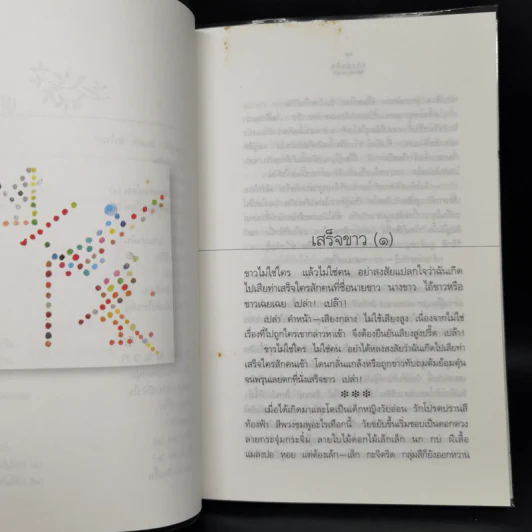 เสร็จขาว (๑)
ขาวไม่ใช่ใคร แล้วไม่ใช่คน อย่าสงสัยแปลกใจว่าฉันเกิด
ไปเสียท่าเสร็จใครสักคนที่ชื่อนายขาว นางขาว ไอ้ขาวหรือ
ขาวเฉยเฉย เปล่า! เปล๊า!
เปล่า คำหน้า—เสียงกลาง ไม่ใช้เสียงสูง เนื่องจากไม่ใช่
เรื่องที่ไปถูกใครเขากล่าวหาเข้า จึงต้องยืนยันเสียงสูงปรี๊ด เปล๊า!
ขาวไม่ใช่ใคร ไม่ใช่คน อย่าได้หลงสงสัยว่าฉันเกิดไปเสียท่า
เสร็จใครสักคนเข้า โดนกลั่นแกล้งหรือถูกข่าวทับถมต้มย้อมตุ๋น
จนพรุนเลยตกที่นั่งเสร็จขาว เปล่า!
***
เมื่อได้เกิดมาและโตเป็นเด็กหญิงวัยอ่อน รักโปรดปรานสี
ท้องฟ้า สีพวงชมพูอะไรเทือกนี้ วัยขยับขึ้นเริ่มชอบเป็นดอกดวง
ลายกระจุ๋มกระจิ๋ม ลายใบไม้ดอกไม้เล็กเล็ก นก กบ ผีเสื้อ
แมลงปอ หอย แต่ต้องเล้ก—เล็ก กะจิดริด กลุ่มสีก็ยังออกหวาน